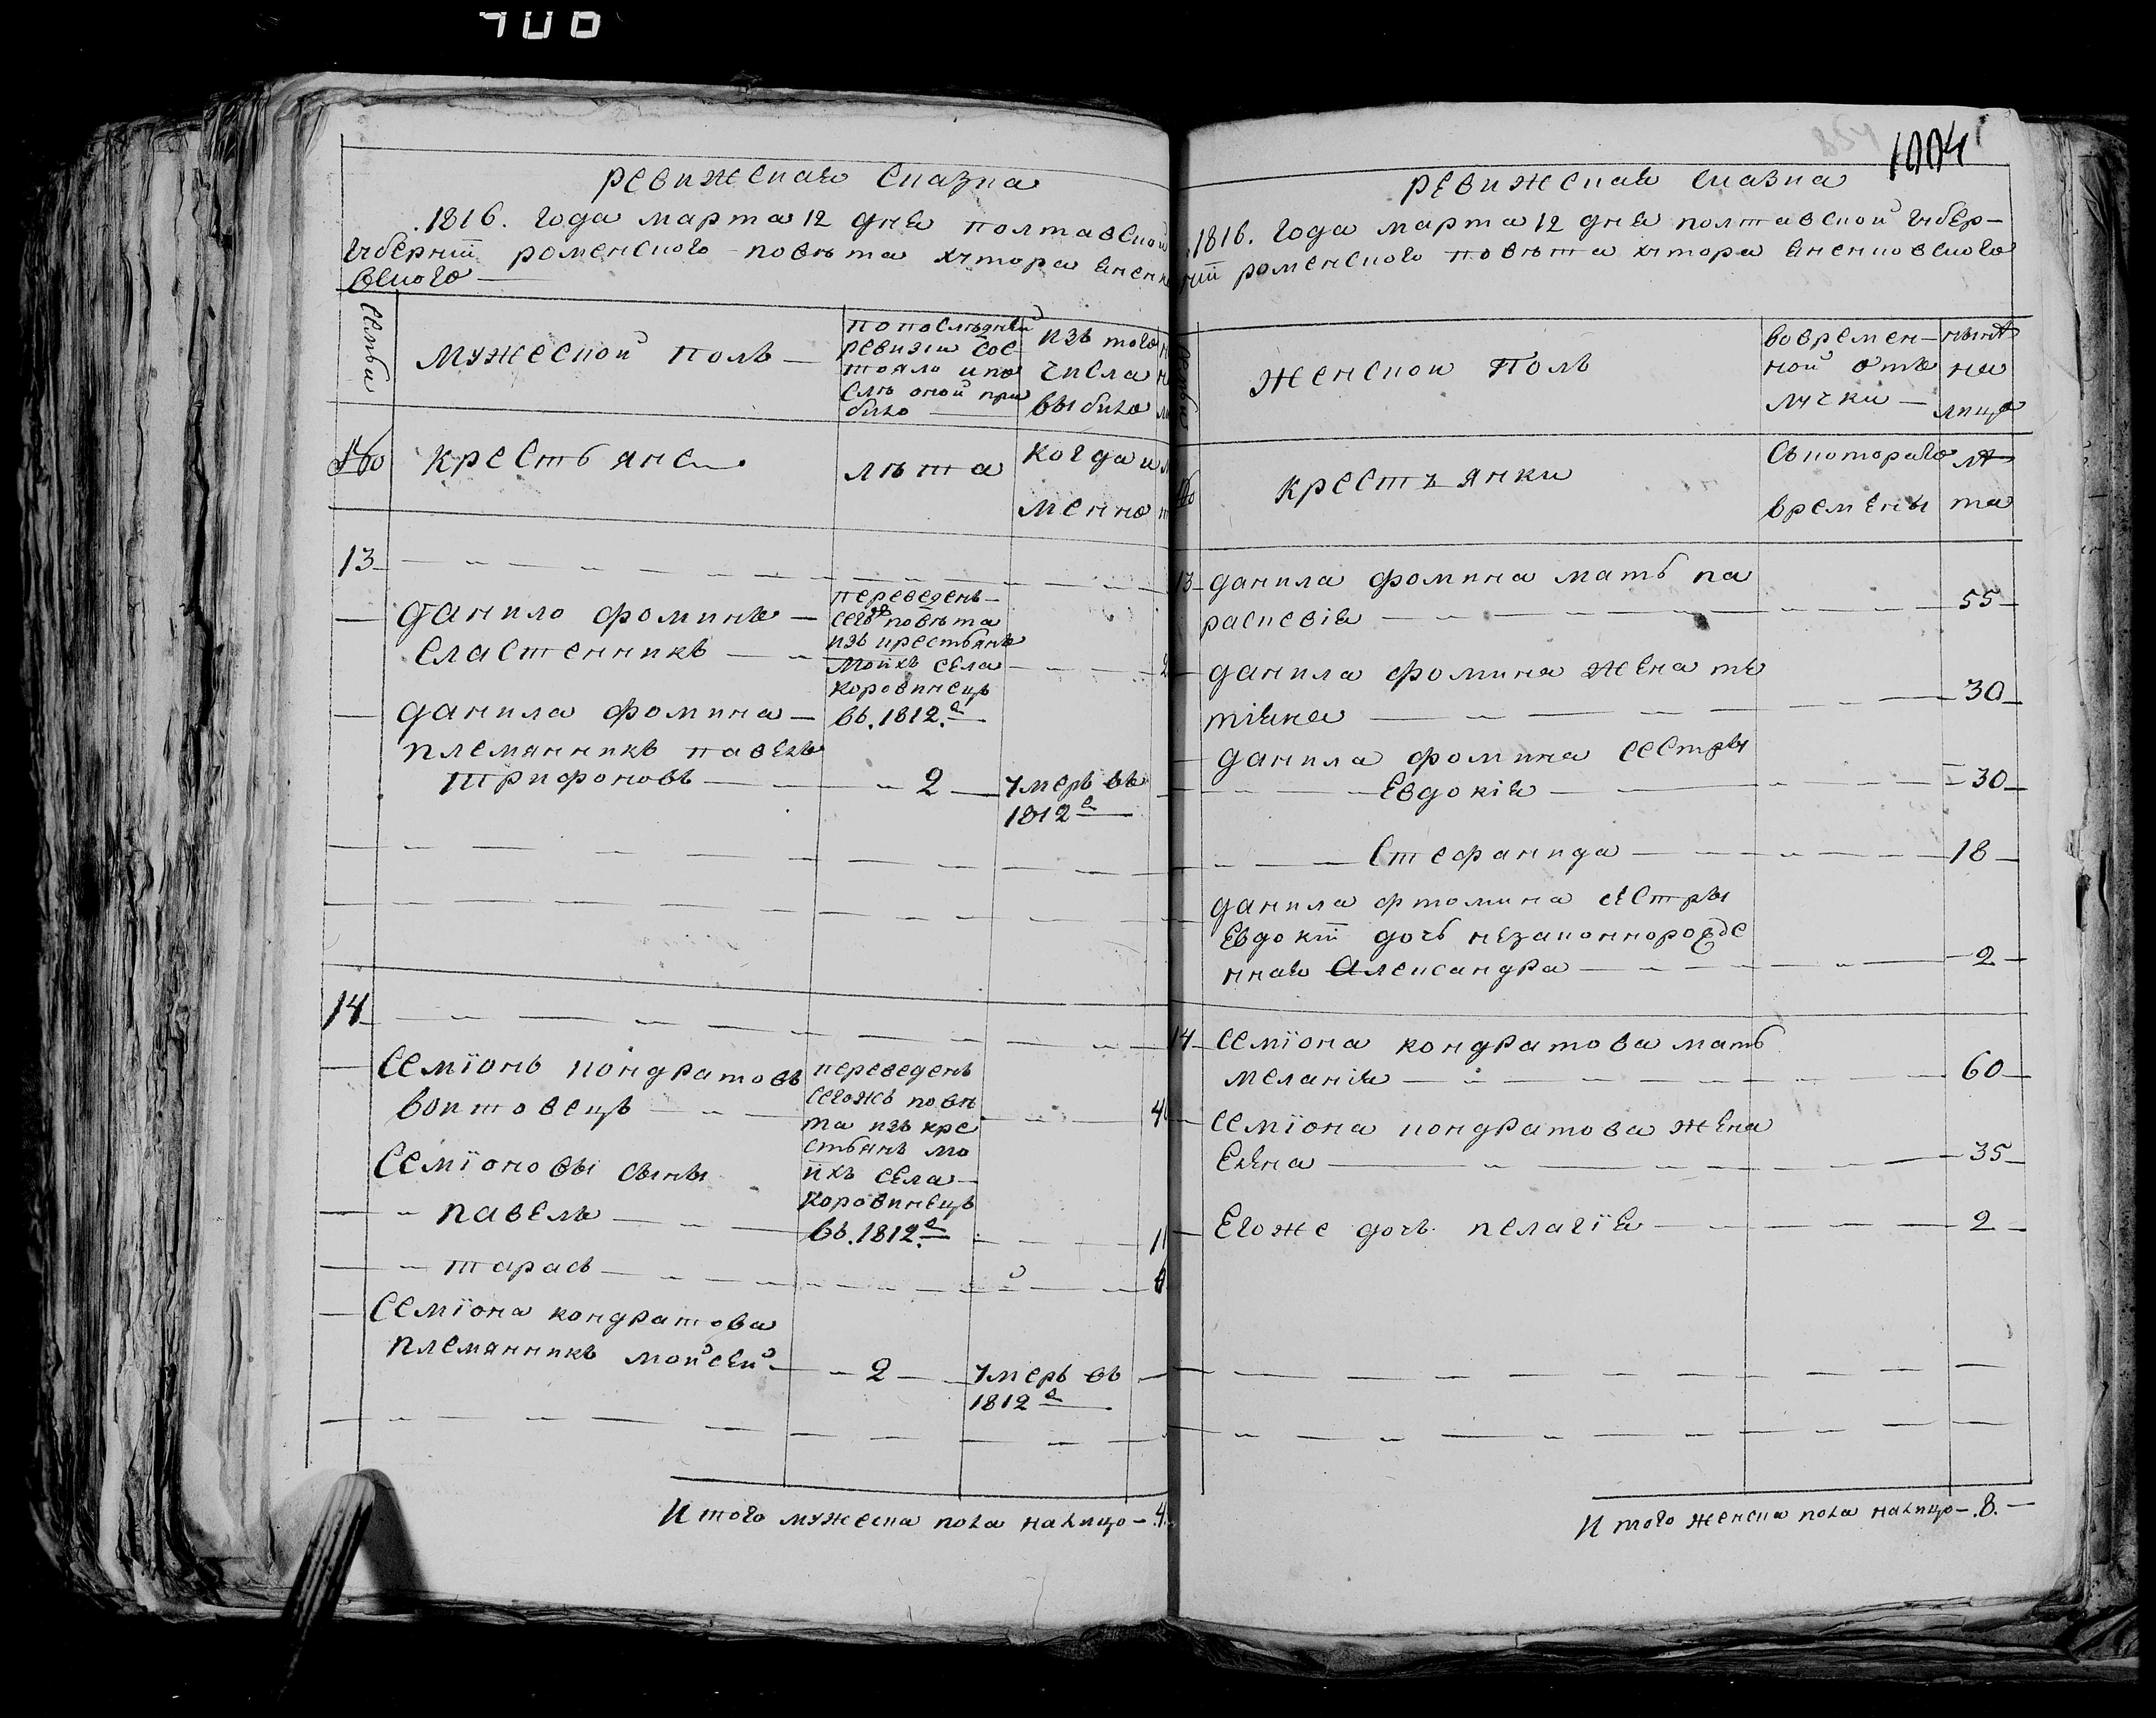 700
ревижская сказка
1816. года марта 12 дня полтавской
губернїи роменского повѣта хутора
вского
семьи
мужеской полъ
по последней
ревизіи сос
тояло и по
слѣ оной при
было
изъ того
числа
выбыло
№
крестьяне
лѣта
когда и
менно
13
данило фоминъ
сластенникъ
переведенъ
сего повѣта
изъ крестьянъ
моихъ села
коровинецъ
въ 1812.г
данила фомина
племянникъ павелъ
трифоновъ
2
умеръ въ
1812 г
14
семїонъ кондратовъ
войтовецъ
переведенъ
сегожъ повѣ
та изъ кре
стьянъ мо
ихъ села
коровинецъ
въ 1812.г
семїоновы сыны
павелъ
11
тарасъ
семїона кондратова
племянникъ мойсей
2
умеръ въ
1812 г
Итого мужеска пола налицо 4
1004
ревижская сказка
1816. года марта 12 дня полтавской губер-
нїи роменского повѣта хутора яненковского
женской полъ
во времен-
ной отъ
лучки
нынѣ
на
лицо
№
крестьянки
съ котораго
времены
лѣ
та
13 данила фомина мать па
раскевія 55
данила фомина жена те
тіяна 30
данила фомина сестры
Евдокія 30
Стефанида 18
данила фтомина сестры
Евдокїи дочь незаконнорожде
нная Александра 2
14 семїона кондратова мать
меланія 60
семїона кондратова жена
Елена 35
Егоже дочь пелагїя 2
Итого женска пола налицо 8.